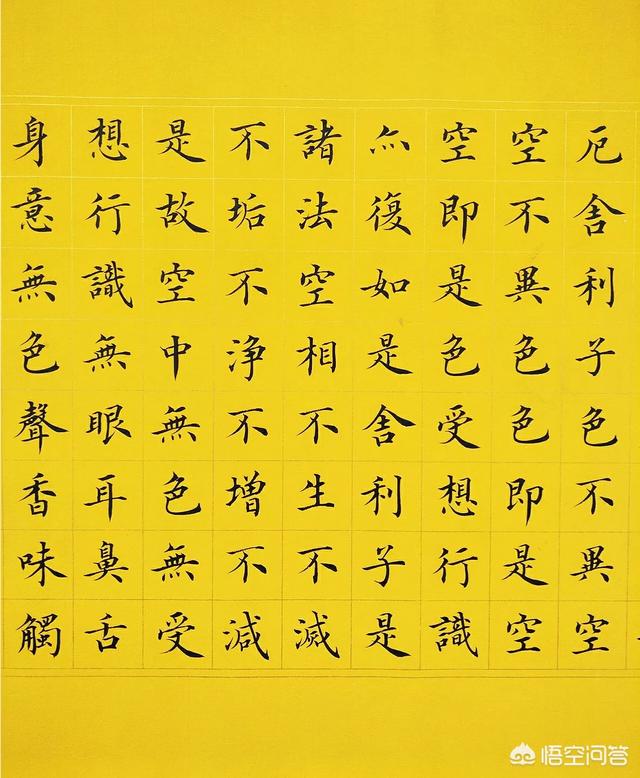 厄舍利子色不異空
空不異色色即是空
空即是色受想行識
亦復如是舍利子是
諸法空相不生不滅
不垢不淨不增不減
是故空中無色無受
想行識無眼耳鼻舌
身意無色聲香味觸
悟空问答